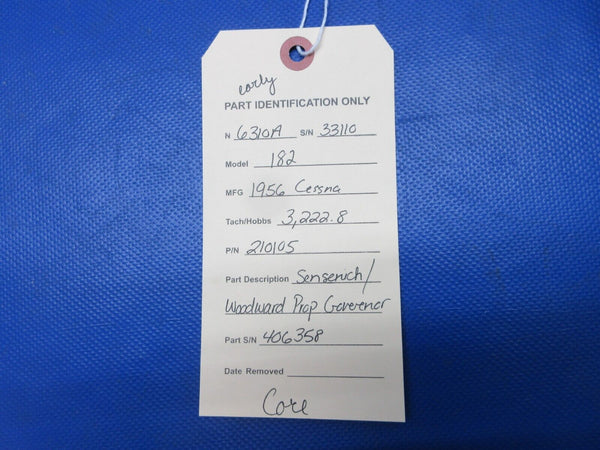 early
PART IDENTIFICATION ONLY
N 6310A S/N 33110
Model 182
MFG 1956 Cessna
Tach/Hobbs 3,222.8
P/N 210105
Part Description Sensenich/
Woodward Prop Goverenor
Part S/N 406358
Date Removed
Core